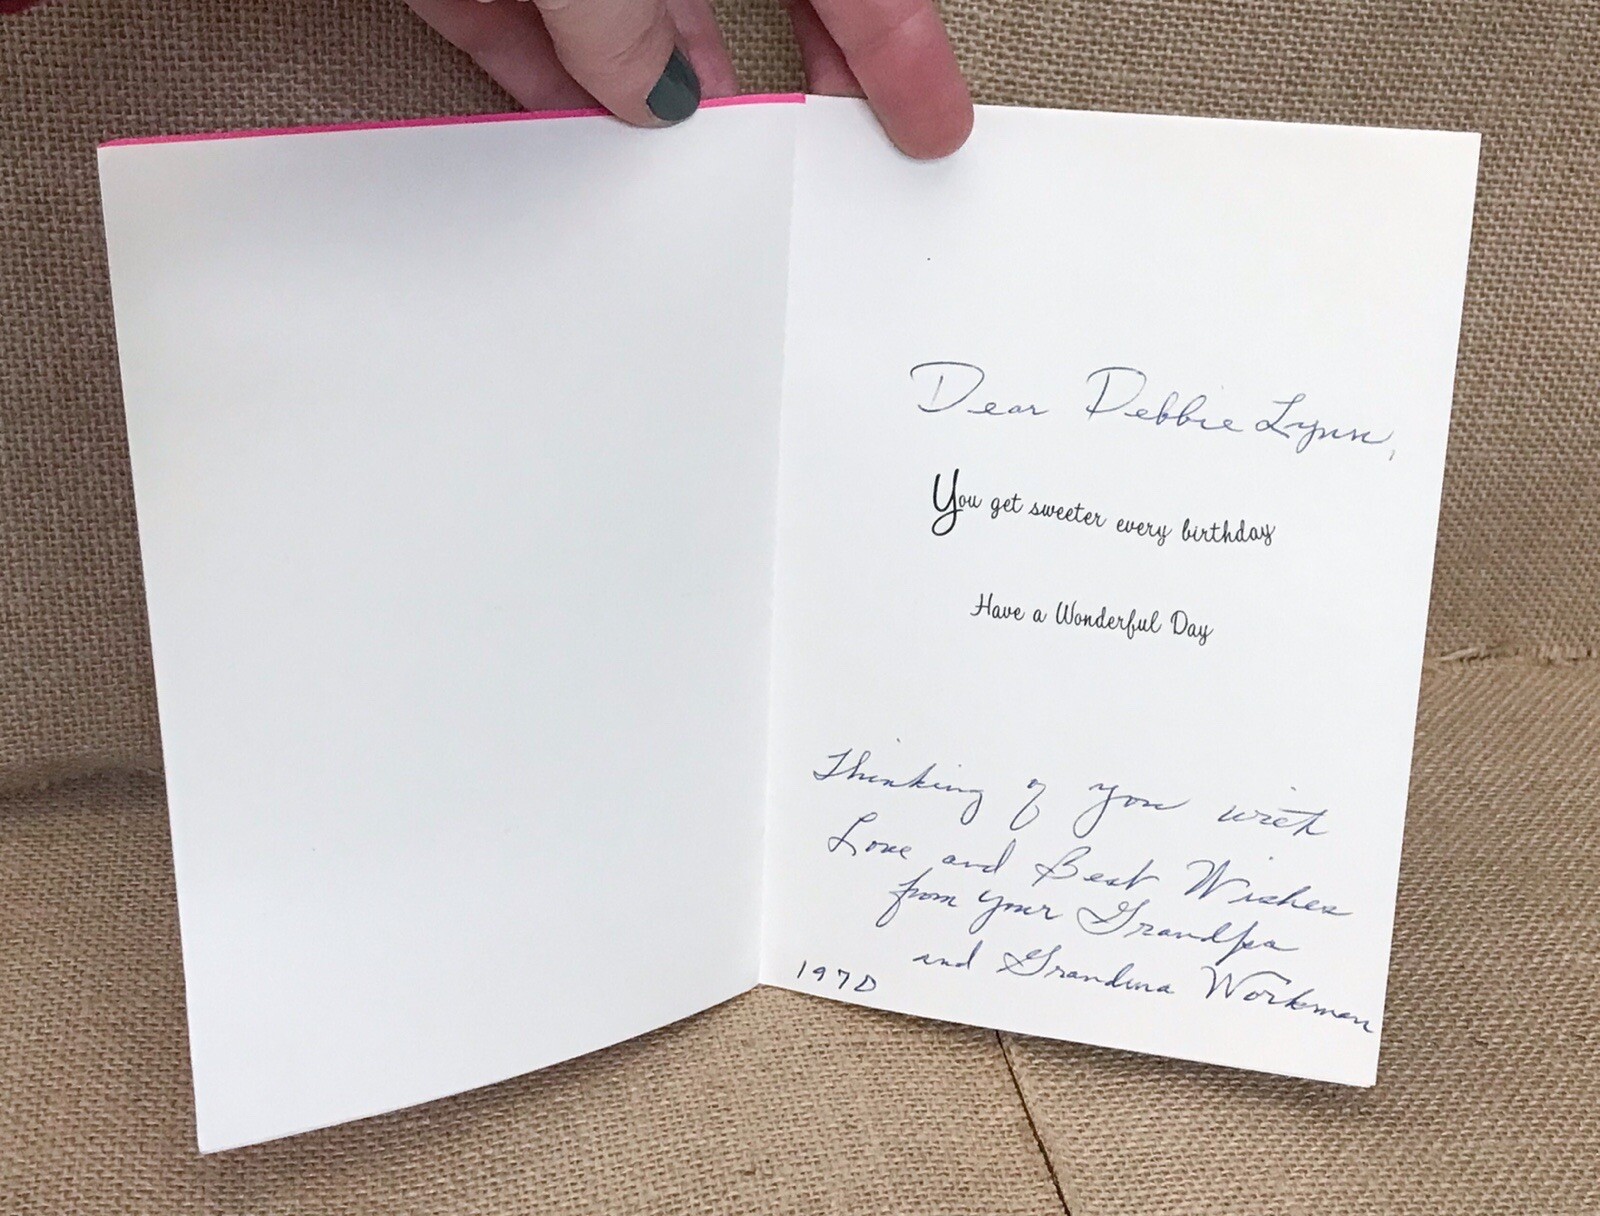 Dear Debbie Lynn,
You get sweeter every birthday
Have a Wonderful Day
Thinking of you with
Love and Best Wishes
from your Grandpa
and Grandma Workman
1970